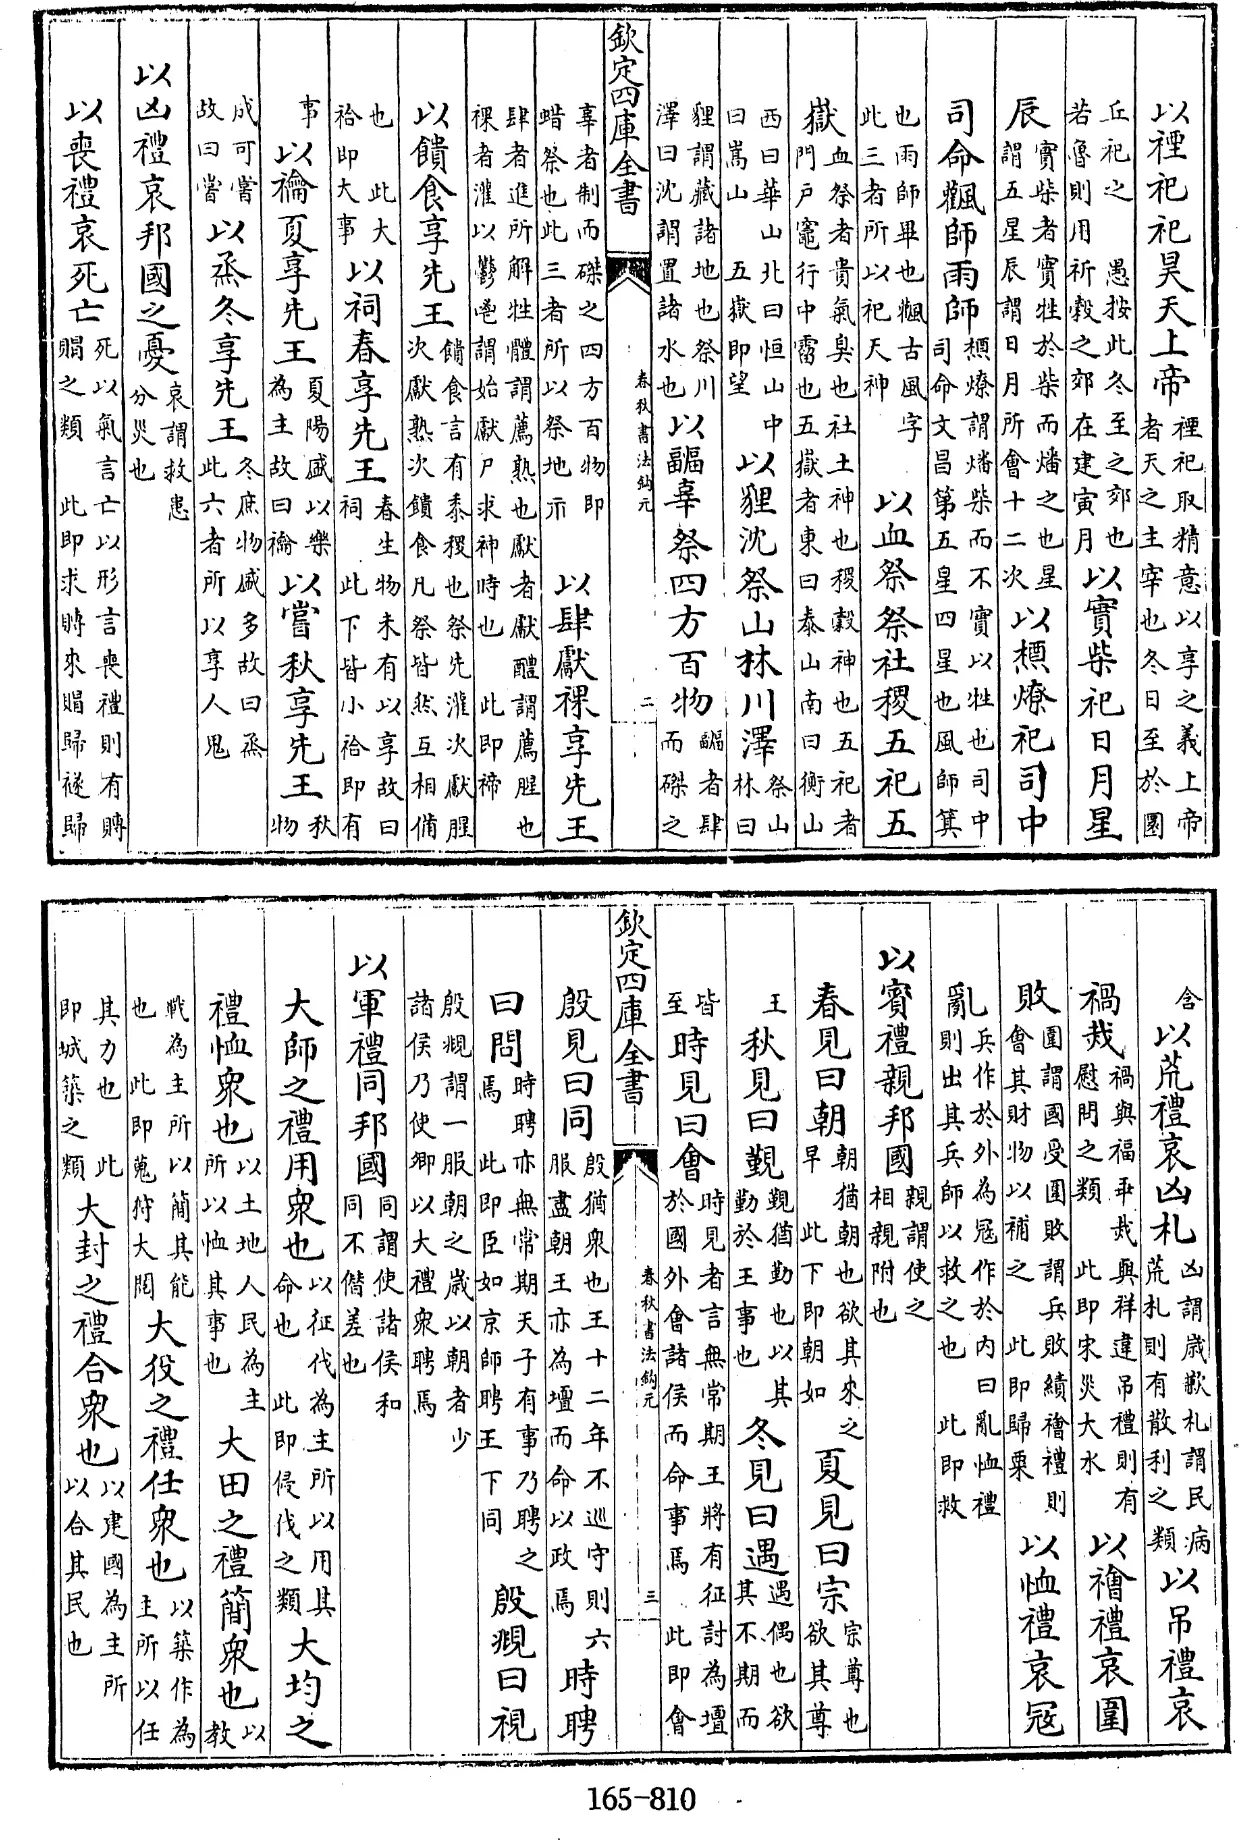 以禋祀祀昊天上帝禋祀取精意以享之義上帝者天之主宰也冬日至於圜
丘祀之 愚按此冬至之郊也若魯則用祈穀之郊在建寅月以實柴祀日月星
辰實柴者實牲於柴而燔之也星辰謂五星辰謂日月所會十二次以槱燎祀司中
司命飌師雨師槱燎謂燔柴而不實以牲也司中司命文昌第五星四星也風師箕
也雨師畢也飌古風字此三者所以祀天神以血祭祭社稷五祀五
嶽血祭者貴氣臭也社土神也稷穀神也五祀者門戶竈行中霤也五嶽者東曰泰山南曰衡山
西曰華山北曰恒山中曰嵩山 五嶽即望以貍沈祭山林川澤祭山林曰
貍謂藏諸地也祭川澤曰沈謂置諸水也以疈辜祭四方百物疈者肆而磔之
欽定四庫全書 春秋書法鉤元 二
辜者制而磔之四方百物即蜡祭也此三者所以祭地示以肆獻祼享先王
肆者進所解牲體謂薦熟也獻者獻醴謂薦腥也祼者灌以鬱鬯謂始獻尸求神時也 此即禘
以饋食享先王饋食言有黍稷也祭先灌次獻腥次獻熟次饋食凡祭皆然互相備
也 此大祫即大事以祠春享先王春生物未有以享故曰祠 此下皆小祫即有
事以禴夏享先王夏陽盛以樂為主故曰禴以嘗秋享先王秋物
成可嘗故曰嘗以烝冬享先王冬庶物盛多故曰烝此六者所以享人鬼
以凶禮哀邦國之憂哀謂救患分災也
以喪禮哀死亡死以氣言亡以形言喪禮則有賻賵之類 此即求賻來賵歸襚歸
含以荒禮哀凶札凶謂歲歉札謂民病荒札則有散利之類以吊禮哀
禍烖禍與福爭烖與祥違吊禮則有慰問之類 此即宋災大水以禬禮哀圍
敗圍謂國受圍敗謂兵敗績禬禮則會其財物以補之 此即歸粟以恤禮哀寇
亂兵作於外為寇作於內曰亂恤禮則出其兵師以救之也 此即救
以賓禮親邦國親謂使之相親附也
春見曰朝朝猶朝也欲其來之早 此下即朝如夏見曰宗宗尊也欲其尊
王秋見曰覲覲猶勤也以其勤於王事也冬見曰遇遇偶也欲其不期而
皆至時見曰會時見者言無常期王將有征討為壇於國外會諸侯而命事焉 此即會
欽定四庫全書 春秋書法鉤元 三
殷見曰同殷猶衆也王十二年不巡守則六服盡朝王亦為壇而命以政焉時聘
曰問時聘亦無常期天子有事乃聘之焉 此即臣如京師聘王下同殷覜曰視
殷覜謂一服朝之歲以朝者少諸侯乃使卿以大禮衆聘焉
以軍禮同邦國同謂使諸侯和同不僭差也
大師之禮用衆也以征伐為主所以用其命也 此即侵伐之類大均之
禮恤衆也以土地人民為主所以恤其事也大田之禮簡衆也以教
戰為主所以簡其能也 此即蒐狩大閱大役之禮任衆也以築作為主所以任
其力也 此即城築之類大封之禮合衆也以建國為主所以合其民也
165-810